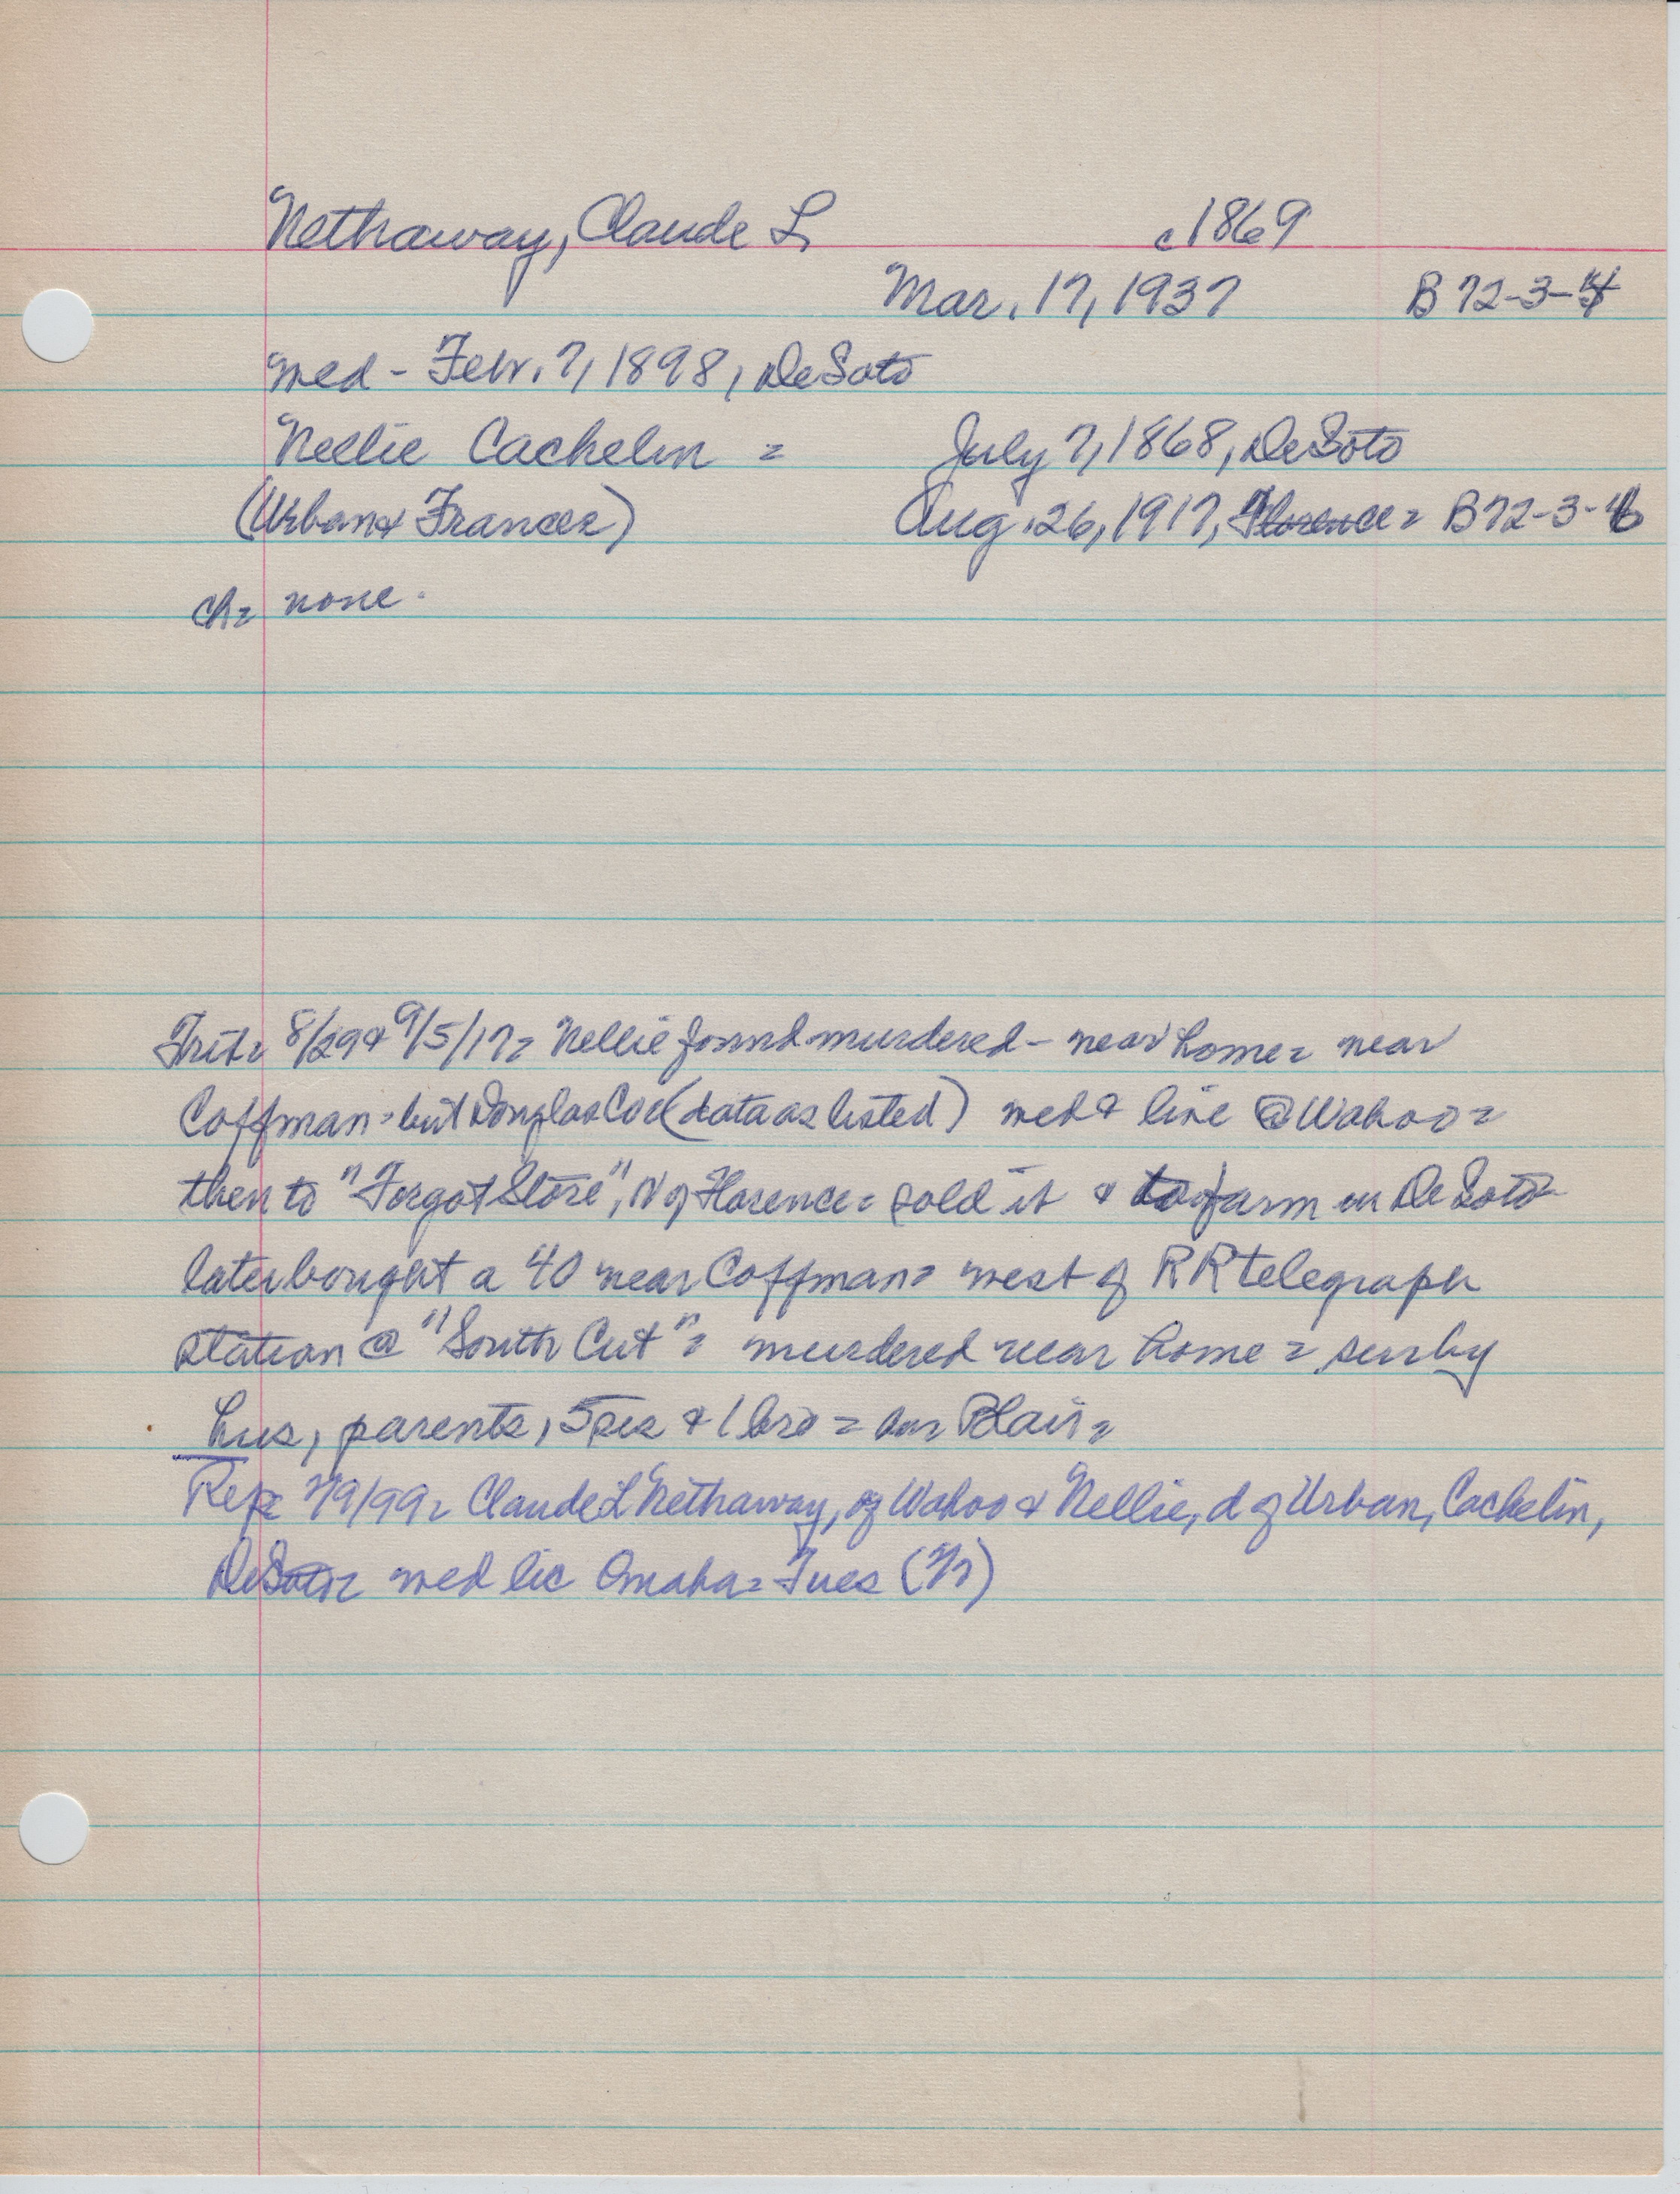 Nethaway, Claude L c1869
Mar. 17, 1937 B72-3-4
med - Febr. 7, 1898, DeSoto
Nellie Cachelin = July 7, 1868, DeSoto
(Urban & Frances) Aug. 26, 1917, Florence = B72-3-
ch= none.
Trib= 8/29 & 9/5/17= Nellie found murdered - near home= near
Coffman= but Douglas Co= (data as listed) med & live @ Wahoo=
then to "Forgot Store", N of Florence= sold it & to farm in DeSoto
later bought a 40 near Coffman= west of RR telegraph
station @ "South Cut"= murdered near home= sur by
hus, parents, 5 sis & 1 bro = bur Blair=
Rep= 2/9/99= Claude L Nethaway, of Wahoo & Nellie, d of Urban, Cachelin,
DeSoto= med lic Omaha= Tues (2/7)